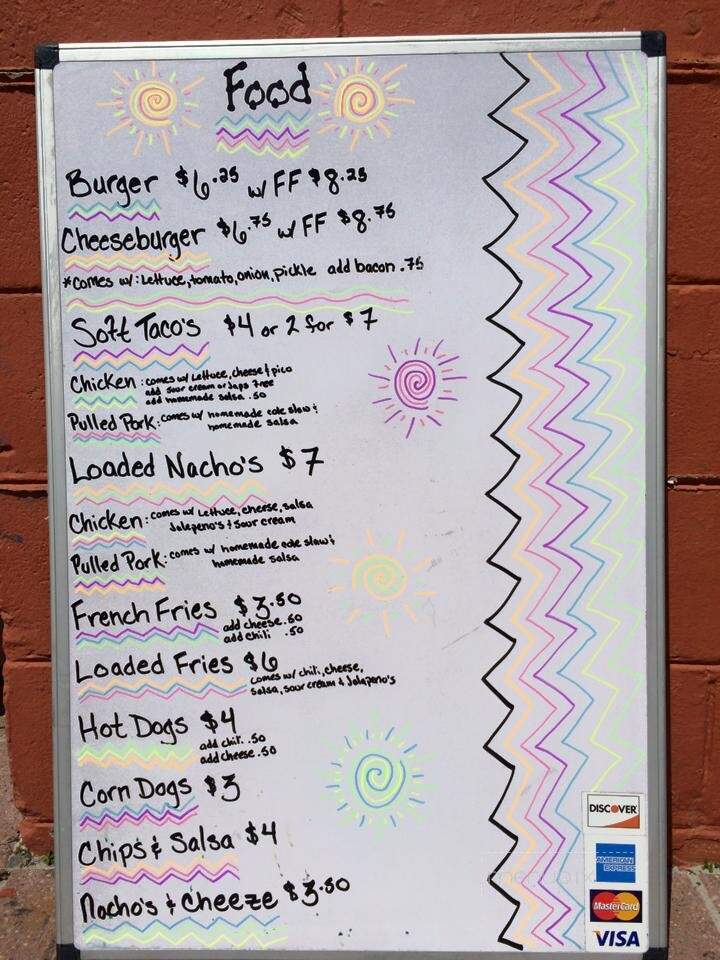 Food
Burger $6.25 w/ FF $8.25
Cheeseburger $6.75 w/ FF $8.75
*comes w/: Lettuce, tomato, onion, pickle add bacon .75
Soft Taco's $4 or 2 for $7
Chicken: comes w/ Lettuce, cheese & pico
add sour cream or Japs free
add homemade salsa .50
Pulled Pork: comes w/ homemade cole slaw &
homemade salsa
Loaded Nacho's $7
Chicken: comes w/ Lettuce, cheese, salsa
Jalepeno's & sour cream
Pulled Pork: comes w/ homemade cole slaw &
homemade salsa
French Fries $3.50
add cheese .50
add chili .50
Loaded Fries $6
comes w/ chili, cheese,
salsa, sour cream & Jalapeno's
Hot Dogs $4
add chili .50
add cheese .50
Corn Dogs $3
Chips & Salsa $4
Nacho's & Cheeze $3.50
DISCOVER
AMERICAN
EXPRESS
MasterCard
VISA